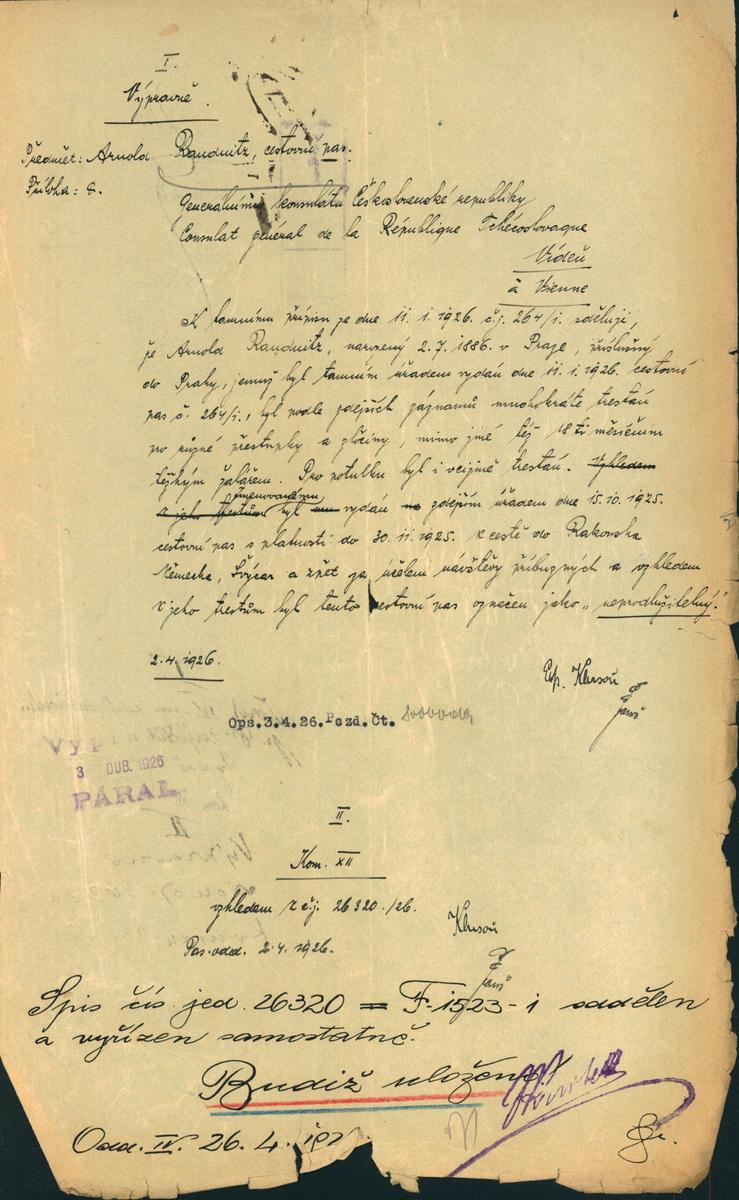 I.
Výpravně.
Předmět: Arnold Raudnitz, cestovní pas.
Příloha: 8.
Generálnímu konsulátu Československé republiky
Consulat général de la République Tchécoslovaque
Vídeň
à Vienne
K tamnímu přípisu ze dne 11. 1. 1926. č.j. 264/i. sděluji,
že Arnold Raudnitz, narozený 2.7.1886. v Praze, příslušný
do Prahy, jemuž byl tamním úřadem vydán dne 11. 1. 1926. cestovní
pas č. 264/i., byl podle zdejších záznamů mnohokráte trestán
pro různé přestupky a zločiny, mimo jiné též 18ti měsíčním
těžkým žalářem. Pro potulku byl i v cizině trestán. Vzhledem
k jeho trestům jmenovanému byl mu vydán zdejším úřadem dne 15.10.1925.
cestovní pas s platností do 30.11.1925. k cestě do Rakouska
Německa, Švýcar a zpět za účelem návštěvy příbuzných a vzhledem
k jeho trestům byl tento cestovní pas označen jako „neprodlužitelný."
2.4.1926.
Klusoň
Janš
Ops.3.4.26.Pozd.Čt. Svoboda
3 DUB. 1926
PÁRAL
II.
Kom. XII
vzhledem k č.j. 26320./26.
Klusoň
Pas. odd. 2.4.1926.
Janš
Spis čís. jed. 26320 = F-1523-1 oddělen
a vyřízen samostatně.
Budiž uloženo
Odd. IV. 26. 4.